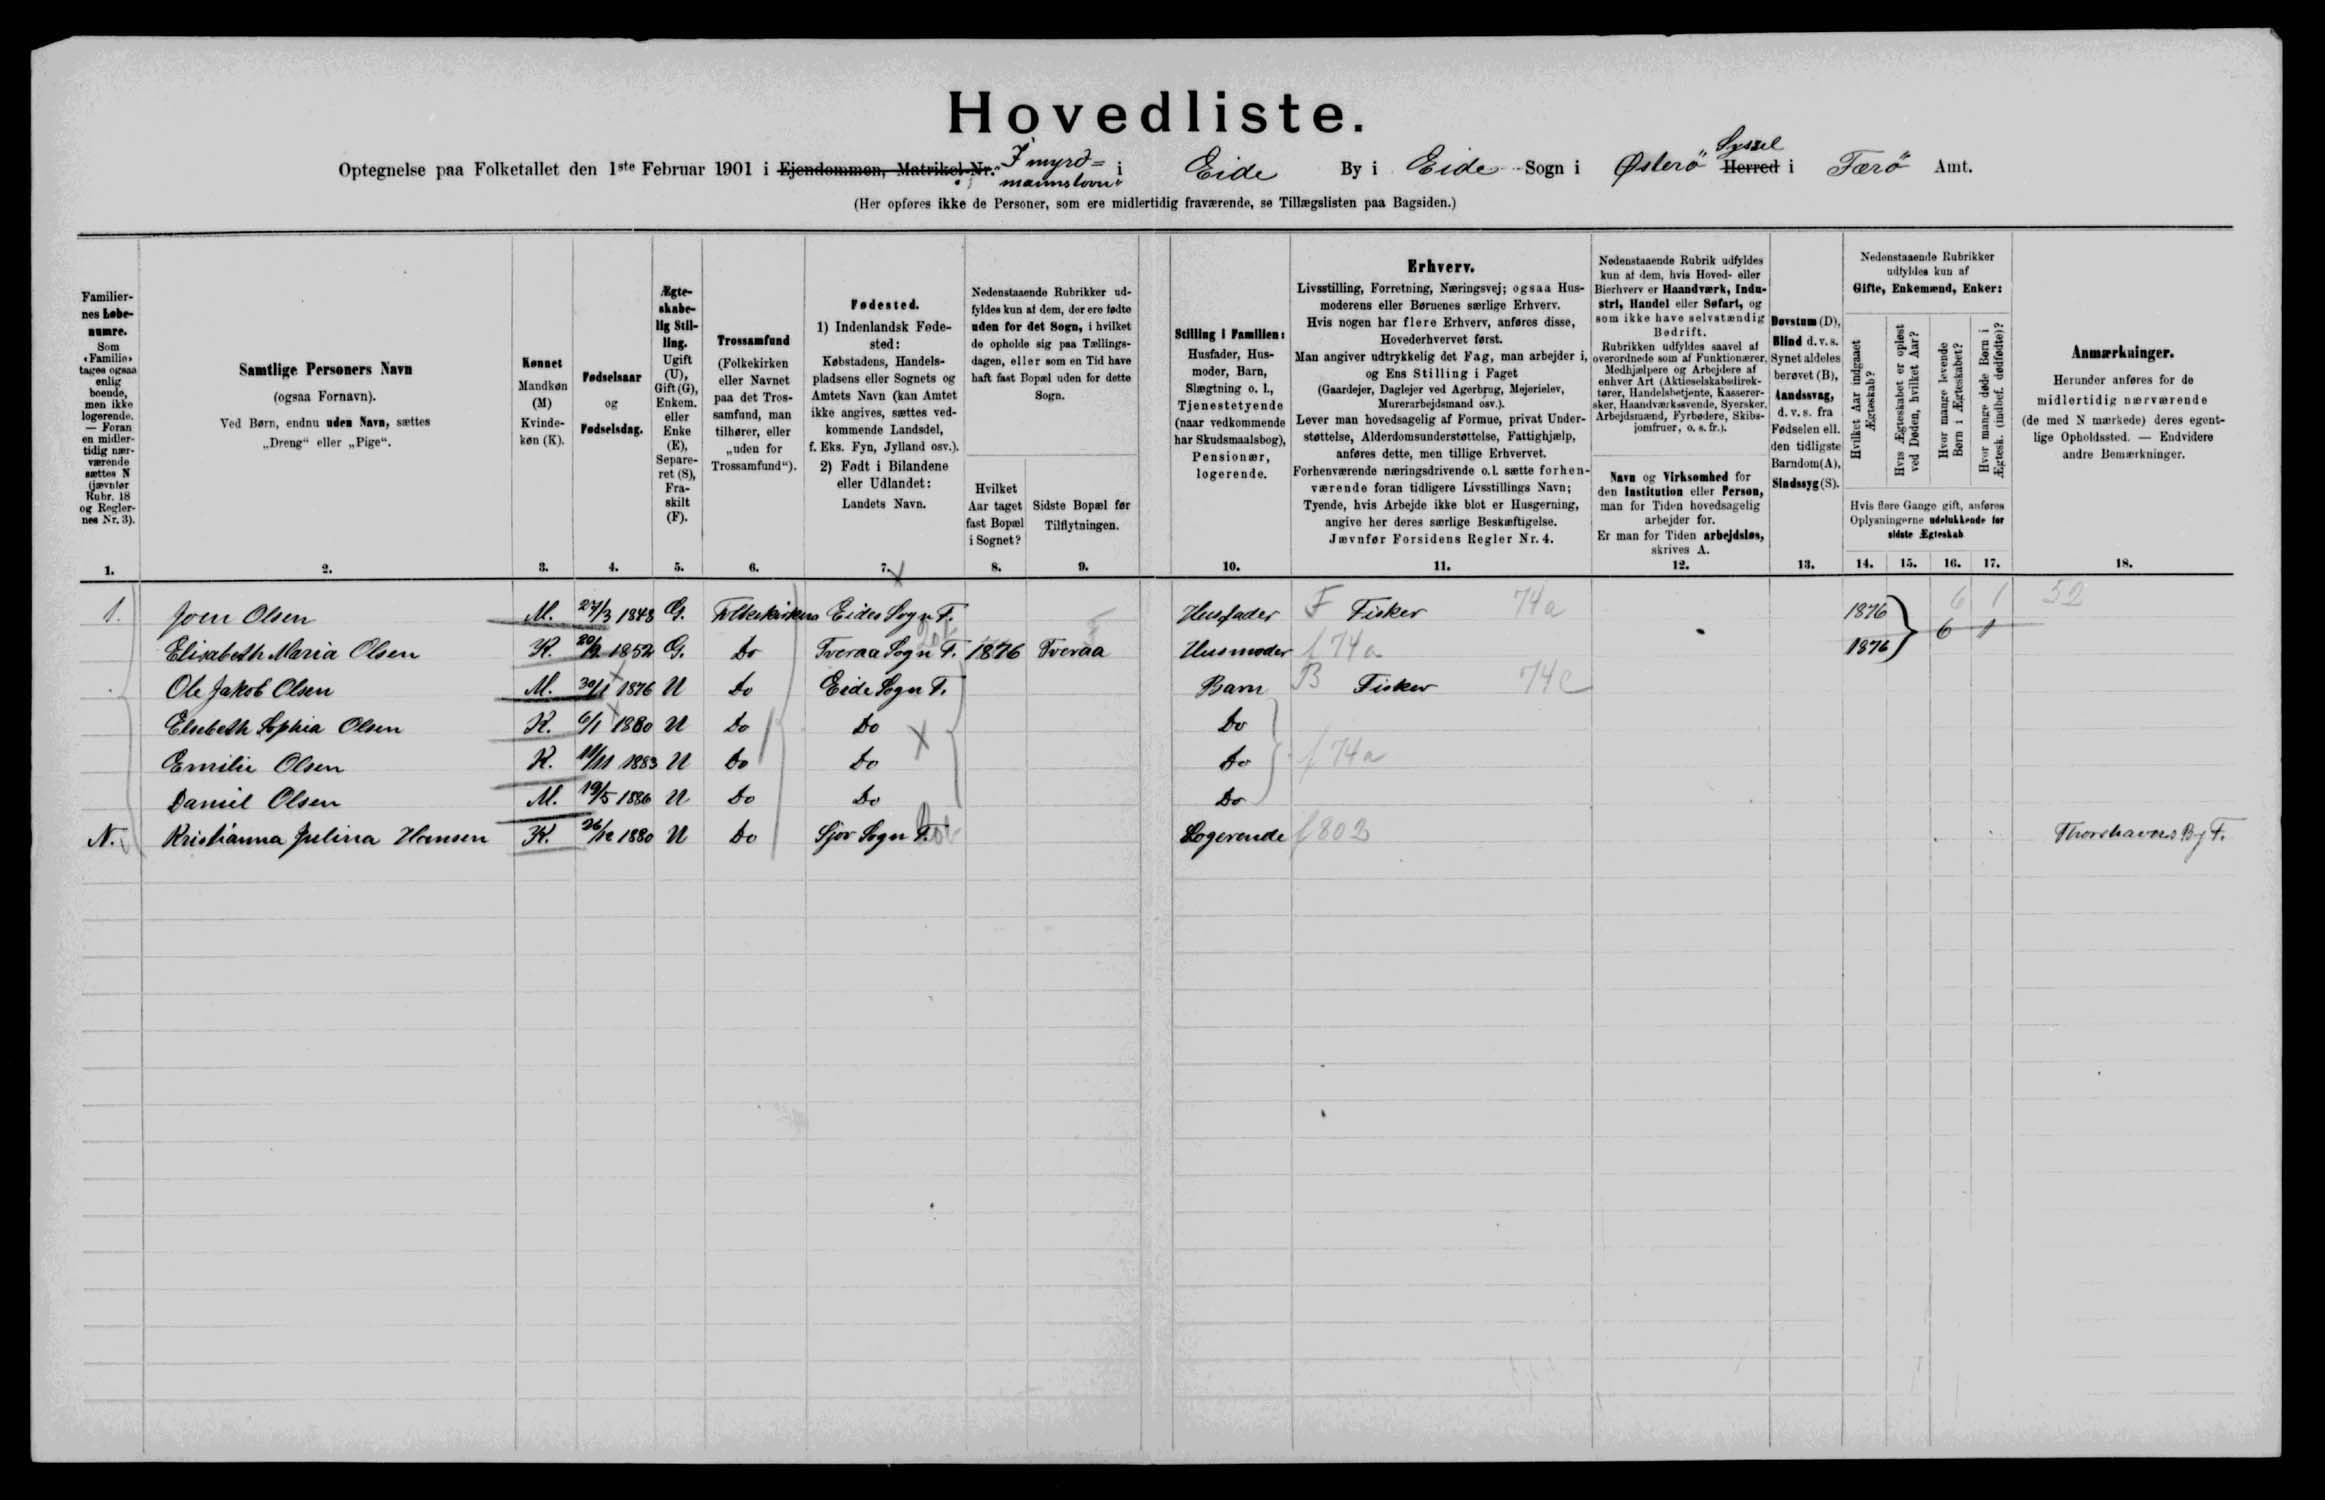 Hovedliste.
Optegnelse paa Folketallet den 1ste Februar 1901 i Ejendommen, Matrikel-Nr. "I myrd= mannstovu" i Eide By i Eide Sogn i Østerø Herred Syssel i Færø Amt.
(Her opføres ikke de Personer, som ere midlertidig fraværende, se Tillægslisten paa Bagsiden.)
Familier-
nes Løbe-
numre.
Som
«Familie»
tages ogsaa
enlig
boende,
men ikke
logerende.
— Foran
en midler-
tidig nær-
værende
sættes N
(jævnfør
Rubr. 18
og Regler-
nes Nr. 3).
Samtlige Personers Navn
(ogsaa Fornavn).
Ved Børn, endnu uden Navn, sættes
„Dreng" eller „Pige".
Kønnet
Mandkøn
(M)
Kvinde-
køn (K).
Fødselsaar
og
Fødselsdag.
Ægte-
skabe-
lig Stil-
ling.
Ugift
(U),
Gift (G),
Enkem.
eller
Enke
(E),
Separe-
ret (S),
Fra-
skilt
(F).
Trossamfund
(Folkekirken
eller Navnet
paa det Tros-
samfund, man
tilhører, eller
„uden for
Trossamfund").
Fødested.
1) Indenlandsk Føde-
sted:
Købstadens, Handels-
pladsens eller Sognets og
Amtets Navn (kan Amtet
ikke angives, sættes ved-
kommende Landsdel,
f. Eks. Fyn, Jylland osv.).
2) Født i Bilandene
eller Udlandet:
Landets Navn.
Nedenstaaende Rubrikker ud-
fyldes kun af dem, der ere fødte
uden for det Sogn, i hvilket
de opholde sig paa Tællings-
dagen, eller som en Tid have
haft fast Bopæl uden for dette
Sogn.
Hvilket
Aar taget
fast Bopæl
i Sognet?
Sidste Bopæl før
Tilflytningen.
Stilling i Familien:
Husfader, Hus-
moder, Barn,
Slægtning o. l.,
Tjenestetyende
(naar vedkommende
har Skudsmaalsbog),
Pensionær,
logerende.
Erhverv.
Livsstilling, Forretning, Næringsvej; ogsaa Hus-
moderens eller Børnenes særlige Erhverv.
Hvis nogen har flere Erhverv, anføres disse,
Hovederhvervet først.
Man angiver udtrykkelig det Fag, man arbejder i,
og Ens Stilling i Faget
(Gaardejer, Daglejer ved Agerbrug, Mejerielev,
Murerarbejdsmand osv.).
Lever man hovedsagelig af Formue, privat Under-
støttelse, Alderdomsunderstøttelse, Fattighjælp,
anføres dette, men tillige Erhvervet.
Forhenværende næringsdrivende o. l. sætte forhen-
værende foran tidligere Livsstillings Navn;
Tyende, hvis Arbejde ikke blot er Husgerning,
angive her deres særlige Beskæftigelse.
Jævnfør Forsidens Regler Nr. 4.
Nedenstaaende Rubrik udfyldes
kun af dem, hvis Hoved- eller
Bierhverv er Haandværk, Indu-
stri, Handel eller Søfart, og
som ikke have selvstændig
Bedrift.
Rubrikken udfyldes saavel af
overordnede som af Funktionærer,
Medhjælpere og Arbejdere af
enhver Art (Aktieselskabsdirek-
tører, Handelsbetjente, Kasserer-
sker, Haandværkssvende, Syersker,
Arbejdsmænd, Fyrbødere, Skibs-
jomfruer, o. s. fr.).
Navn og Virksomhed for
den Institution eller Person,
man for Tiden hovedsagelig
arbejder for.
Er man for Tiden arbejdsløs,
skrives A.
Døvstum (D),
Blind d. v. s.
Synet aldeles
berøvet (B),
Aandssvag,
d. v. s. fra
Fødselen ell.
den tidligste
Barndom (A),
Sindssyg (S).
Nedenstaaende Rubrikker
udfyldes kun af
Gifte, Enkemænd, Enker:
Hvilket Aar indgaaet
Ægteskab?
Hvis Ægteskabet er opløst
ved Døden, hvilket Aar?
Hvor mange levende
Børn i Ægteskabet?
Hvor mange døde Børn i
Ægtesk. (indbef. dødfødte)?
Hvis flere Gange gift, anføres
Oplysningerne udelukkende for
sidste Ægteskab
Anmærkninger.
Herunder anføres for de
midlertidig nærværende
(de med N mærkede) deres egent-
lige Opholdssted. — Endvidere
andre Bemærkninger.
1. 2. 3. 4. 5. 6. 7. 8. 9. 10. 11. 12. 13. 14. 15. 16. 17. 18.
1. Joen Olsen M. 27/3 1848 G. Folkekirken Eides Sogn F. Husfader F Fisker 74a 1876 6 1 52
Elisabeth Maria Olsen K. 1852 G. Do Tveraa Sogn F. 1876 Tveraa Husmoder f 74a 1876 6 1
Ole Jakob Olsen M. 30/1 1876 U Do Eide Sogn F. Barn B Fisker 74c
Elsebeth Sophia Olsen K. 6/1 1880 U Do Do Do
Emilie Olsen K. 11/11 1883 U Do Do Do f 74a
Daniel Olsen M. 19/5 1886 U Do Do Do
N. Kristianna Julina Hansen K. 26/12 1880 U Do Sjov Sogn F. Logerende f 802 Thorshavns By F.